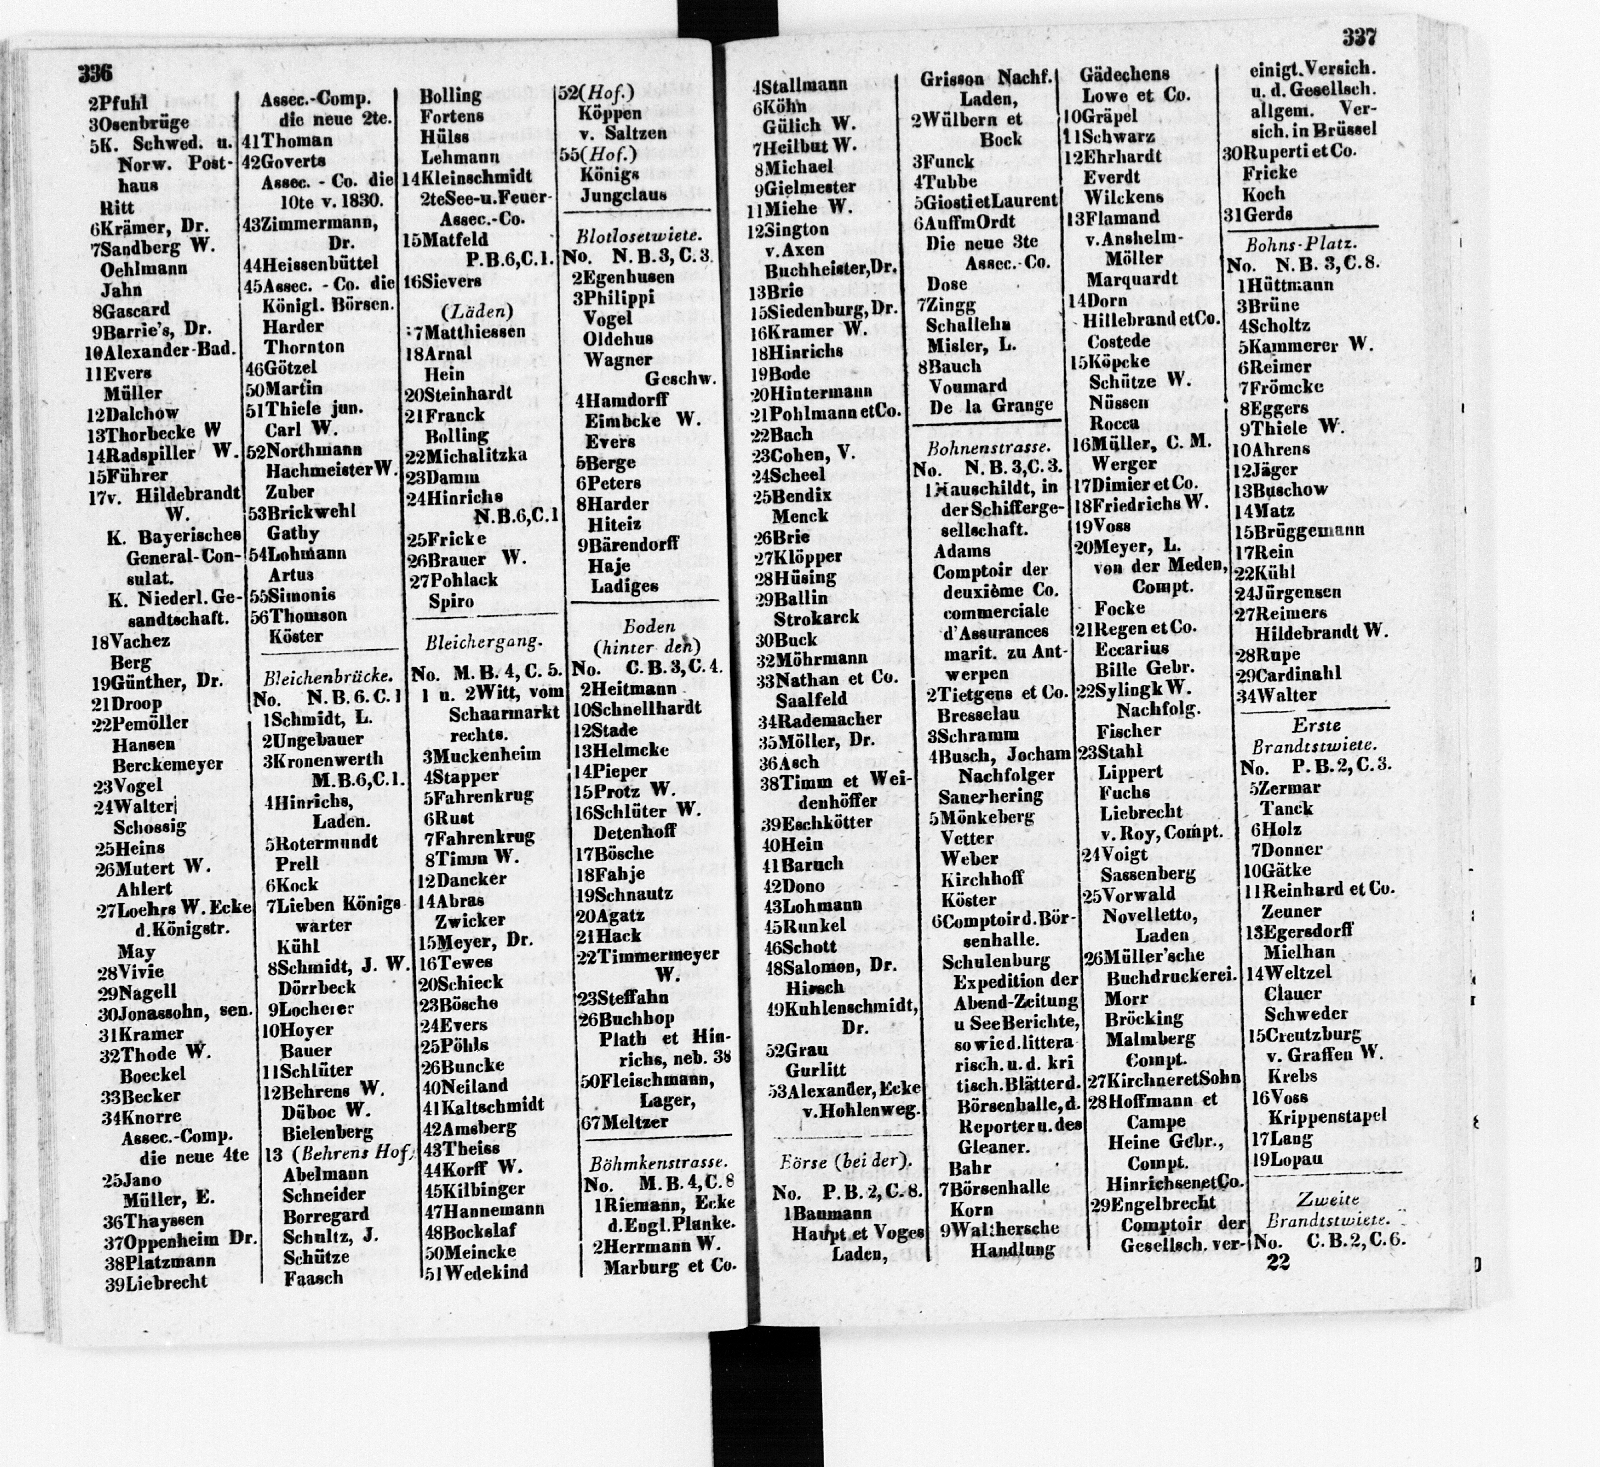 336
2Pfuhl
3Osenbrüge
5K. Schwed. u.
Norw. Post-
haus
Ritt
6Krämer, Dr.
7Sandberg W.
Oehlmann
Jahn
8Gascard
9Barrie's, Dr.
10Alexander-Bad.
11Evers
Müller
12Dalchow
13Thorbecke W
14Radspiller W.
15Führer
17v. Hildebrandt
W.
K. Bayerisches
General-Con-
sulat.
K. Niederl. Ge-
sandtschaft.
18Vachez
Berg
19Günther, Dr.
21Droop
22Pemöller
Hansen
Berckemeyer
23Vogel
24Walter
Schossig
25Heins
26Mutert W.
Ahlert
27Loehrs W. Ecke
d. Königstr.
May
28Vivie
29Nagell
30Jonassohn, sen.
31Kramer
32Thode W.
Boeckel
33Becker
34Knorre
Assec.-Comp.
die neue 4te
25Jano
Müller, E.
36Thayssen
37Oppenheim Dr.
38Platzmann
39Liebrecht
Assec.-Comp.
die neue 2te.
41Thoman
42Goverts
Assec. - Co. die
10te v. 1830.
43Zimmermann,
Dr.
44Heissenbüttel
45Assec. - Co. die
Königl. Börsen.
Harder
Thornton
46Götzel
50Martin
51Thiele jun.
Carl W.
52Northmann
Hachmeister W.
Zuber
53Brickwehl
Gathy
54Lohmann
Artus
55Simonis
56Thomson
Köster
Bleichenbrücke.
No. N. B. 6. C. 1
1Schmidt, L.
2Ungebauer
3Kronenwerth
M.B.6,C.1.
4Hinrichs,
Laden.
5Rotermundt
Prell
6Kock
7Lieben Königs
warter
Kühl
8Schmidt, J. W.
Dörrbeck
9Locherer
10Hoyer
Bauer
11Schlüter
12Behrens W.
Düboc W.
Bielenberg
13 (Behrens Hof,
Abelmann
Schneider
Borregard
Schultz, J.
Schütze
Faasch
Bolling
Fortens
Hülss
Lehmann
14Kleinschmidt
2teSee-u.Feuer-
Assec.-Co.
15Matfeld
P.B.6,C.1.
16Sievers
(Läden)
7Matthiessen
18Arnal
Hein
20Steinhardt
21Franck
Bolling
22Michalitzka
23Damm
24Hinrichs
N.B.6,C.1
25Fricke
26Brauer W.
27Pohlack
Spiro
Bleichergang.
No. M. B. 4, C. 5.
1 u. 2Witt, vom
Schaarmarkt
rechts.
3Muckenheim
4Stapper
5Fahrenkrug
6Rust
7Fahrenkrug
8Timm W.
12Dancker
14Abras
Zwicker
15Meyer, Dr.
16Tewes
20Schieck
23Bösche
24Evers
25Pöhls
26Buncke
40Neiland
41Kaltschmidt
42Amsberg
43Theiss
44Korff W.
45Kilbinger
47Hannemann
48Bockslaf
50Meincke
51Wedekind
52(Hof.)
Köppen
v. Saltzen
55(Hof.)
Königs
Jungclaus
Blotlosetwiete.
No. N. B. 3, C. 3.
2Egenhusen
3Philippi
Vogel
Oldehus
Wagner
Geschw.
4Hamdorff
Eimbcke W.
Evers
5Berge
6Peters
8Harder
Hiteiz
9Bärendorff
Haje
Ladiges
Boden
(hinter den)
No. C. B. 3, C. 4.
2Heitmann
10Schnellhardt
12Stade
13Helmcke
14Pieper
15Protz W.
16Schlüter W.
Detenhoff
17Bösche
18Fahje
19Schnautz
20Agatz
21Hack
22Timmermeyer
W.
23Steffahn
26Buchhop
Plath et Hin-
richs, neb. 38
50Fleischmann,
Lager,
67Meltzer
Böhmkenstrasse.
No. M. B. 4, C. 8
1Riemann, Ecke
d.Engl.Planke.
2Herrmann W.
Marburg et Co.
337
4Stallmann
6Köhn
Gülich W.
7Heilbut W.
8Michael
9Gielmester
11Miehe W.
12Sington
v. Axen
Buchheister, Dr.
13Brie
15Siedenburg, Dr.
16Kramer W.
18Hinrichs
19Bode
20Hintermann
21Pohlmann et Co.
22Bach
23Cohen, V.
24Scheel
25Bendix
Menck
26Brie
27Klöpper
28Hüsing
29Ballin
Strokarck
30Buck
32Möhrmann
33Nathan et Co.
Saalfeld
34Rademacher
35Möller, Dr.
36Asch
38Timm et Wei-
denhöffer
39Eschkötter
40Hein
41Baruch
42Dono
43Lohmann
45Runkel
46Schott
48Salomon, Dr.
Hirsch
49Kuhlenschmidt,
Dr.
52Grau
Gurlitt
53Alexander, Ecke
v. Hohlenweg.
Börse (bei der).
No. P. B. 2, C. 8.
1Baumann
Haupt et Voges
Laden,
Grisson Nachf.
Laden,
2Wülbern et
Bock
3Funck
4Tubbe
5Giosti et Laurent
6AuffmOrdt
Die neue 3te
Assec.-Co.
Dose
7Zingg
Schallehn
Misler, L.
8Bauch
Voumard
De la Grange
Bohnenstrasse.
No. N. B. 3, C. 3.
1Hauschildt, in
der Schifferge-
sellschaft.
Adams
Comptoir der
deuxième Co.
commerciale
d'Assurances
marit. zu Ant-
werpen
2Tietgens et Co.
Bresselau
3Schramm
4Busch, Jocham
Nachfolger
Sauerhering
5Mönkeberg
Vetter
Weber
Kirchhoff
Köster
6Comptoir d. Bör-
senhalle.
Schulenburg
Expedition der
Abend-Zeitung
u See Berichte,
so wie d. littera
risch. u. d. kri
tisch. Blätter d.
Börsenhalle, d.
Reporter u. des
Gleaner.
Bahr
7Börsenhalle
Korn
9Walthersche
Handlung
Gädechens
Lowe et Co.
10Gräpel
11Schwarz
12Ehrhardt
Everdt
Wilckens
13Flamand
v. Anshelm-
Möller
Marquardt
14Dorn
Hillebrand et Co.
Costede
15Köpcke
Schütze W.
Nüssen
Rocca
16Müller, C. M.
Werger
17Dimier et Co.
18Friedrichs W.
19Voss
20Meyer, L.
von der Meden,
Compt.
Focke
21Regen et Co.
Eccarius
Bille Gebr.
22Sylingk W.
Nachfolg.
Fischer
23Stahl
Lippert
Fuchs
Liebrecht
v. Roy, Compt.
24Voigt
Sassenberg
25Vorwald
Novelletto,
Laden
26Müller'sche
Buchdruckerei.
Morr
Bröcking
Malmberg
Compt.
27Kirchner et Sohn
28Hoffmann et
Campe
Heine Gebr.,
Compt.
Hinrichsen et Co.
29Engelbrecht
Comptoir der
Gesellsch. ver-
einigt. Versich.
u. d. Gesellsch.
allgem. Ver-
sich. in Brüssel
30Ruperti et Co.
Fricke
Koch
31Gerds
Bohns-Platz.
No. N. B. 3, C. 8.
1Hüttmann
3Brüne
4Scholtz
5Kammerer W.
6Reimer
7Frömcke
8Eggers
9Thiele W.
10Ahrens
12Jäger
13Buschow
14Matz
15Brüggemann
17Rein
22Kühl
24Jürgensen
27Reimers
Hildebrandt W.
28Rupe
29Cardinahl
34Walter
Erste
Brandtstwiete.
No. P. B. 2, C. 3.
5Zermar
Tanck
6Holz
7Donner
10Gätke
11Reinhard et Co.
Zeuner
13Egersdorff
Mielhan
14Weltzel
Clauer
Schweder
15Creutzburg
v. Graffen W.
Krebs
16Voss
Krippenstapel
17Lang
19Lopau
Zweite
Brandtstwiete.
No. C. B. 2, C. 6.
22